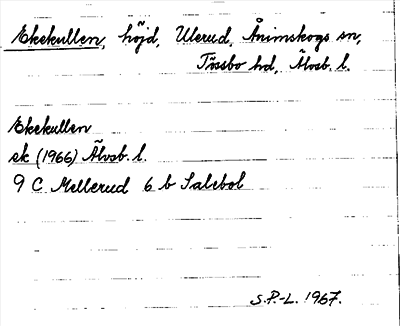 Ekekullen, höjd, Ulerud, Ånimskogs sn,
Tössbo hd, Älvsb. l.
Ekekullen
ek (1966) Älvsb. l.
9 C Mellerud 6 b Salebol
S.P.-L. 1967.